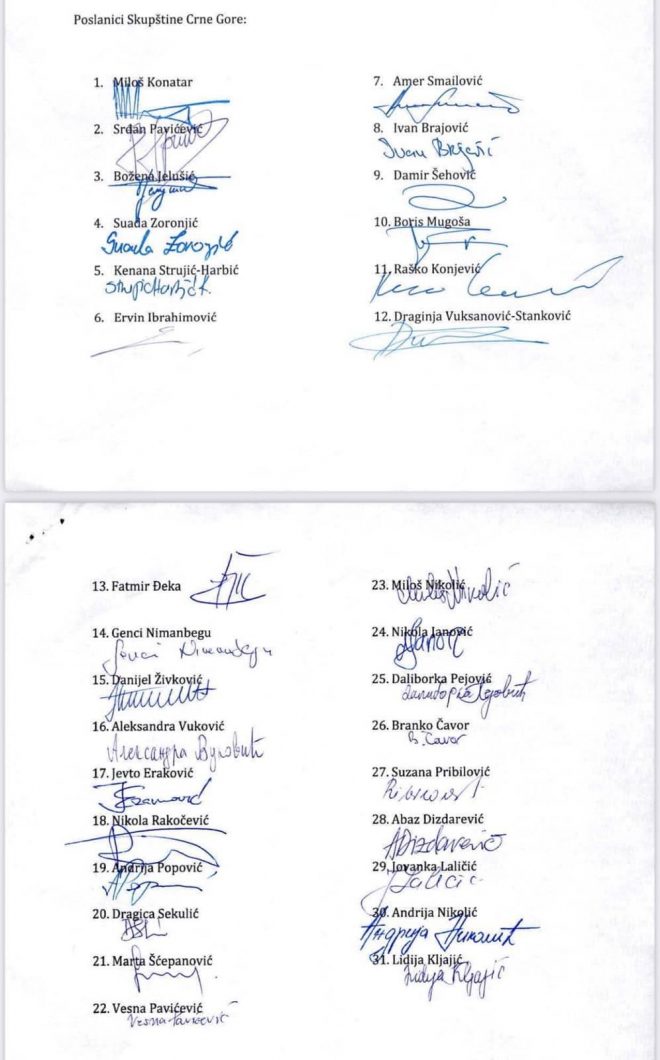 Poslanici Skupštine Crne Gore:
1. Miloš Konatar
2. Srđan Pavićević
3. Božena Jelušić
4. Suada Zoronjić
Suada Zoronjić
5. Kenana Strujić-Harbić
6. Ervin Ibrahimović
7. Amer Smailović
8. Ivan Brajović
Ivan Brajović
9. Damir Šehović
10. Boris Mugoša
11. Raško Konjević
12. Draginja Vuksanović-Stanković
13. Fatmir Đeka
14. Genci Nimanbegu
Genci Nimanbegu
15. Danijel Živković
16. Aleksandra Vuković
Александра Вуковић
17. Jevto Eraković
18. Nikola Rakočević
19. Andrija Popović
20. Dragica Sekulić
21. Marta Šćepanović
22. Vesna Pavićević
Vesna Pavićević
23. Miloš Nikolić
Miloš Nikolić
24. Nikola Janović
Janović
25. Daliborka Pejović
Далиборка Пејовић
26. Branko Čavor
B. Čavor
27. Suzana Pribilović
28. Abaz Dizdarević
A Dizdarević
29. Jovanka Laličić
Laličić
30. Andrija Nikolić
Андрија Николић
31. Lidija Kljajić
Lidija Kljajić